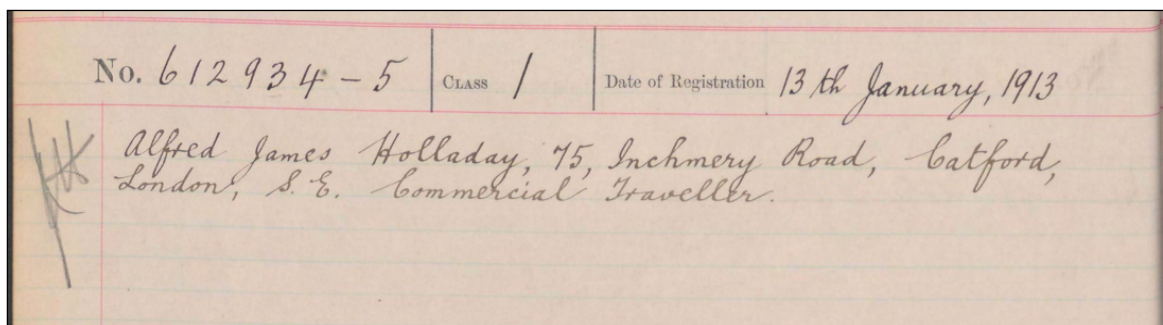 No. 612934-5 CLASS 1 Date of Registration 13th January, 1913
Alfred James Holladay, 75, Inchmery Road, Catford,
London, S.E. Commercial Traveller.